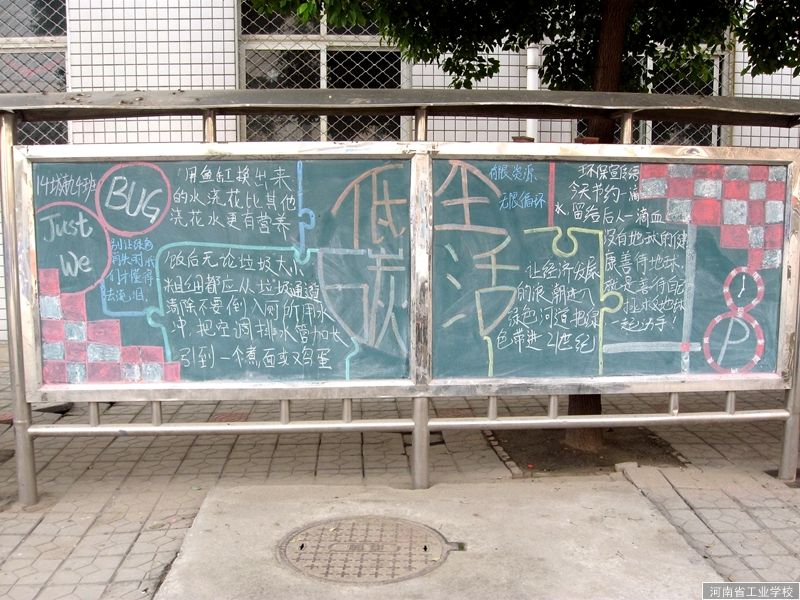 BUG
Just
We
用鱼缸换出来
的水浇花比其他
浇花水更有营养
别让绿色
们才懂得
饭后无论垃圾大小
粗细都应从垃圾通道
清除不要倒入厕所用水
冲,把空调排水管加长
引到一个煮面或鸡蛋
低
碳
生
活
有限资源
无限循环
环保宣传稿
今天节约一滴
水,留给后人一滴血
让经济发展
的浪潮进入
绿色河道把绿
色带进21世纪
没有地球的健
康善待地球,
就是善待自己
拯救地球
一起动手!
P
河南省工业学校